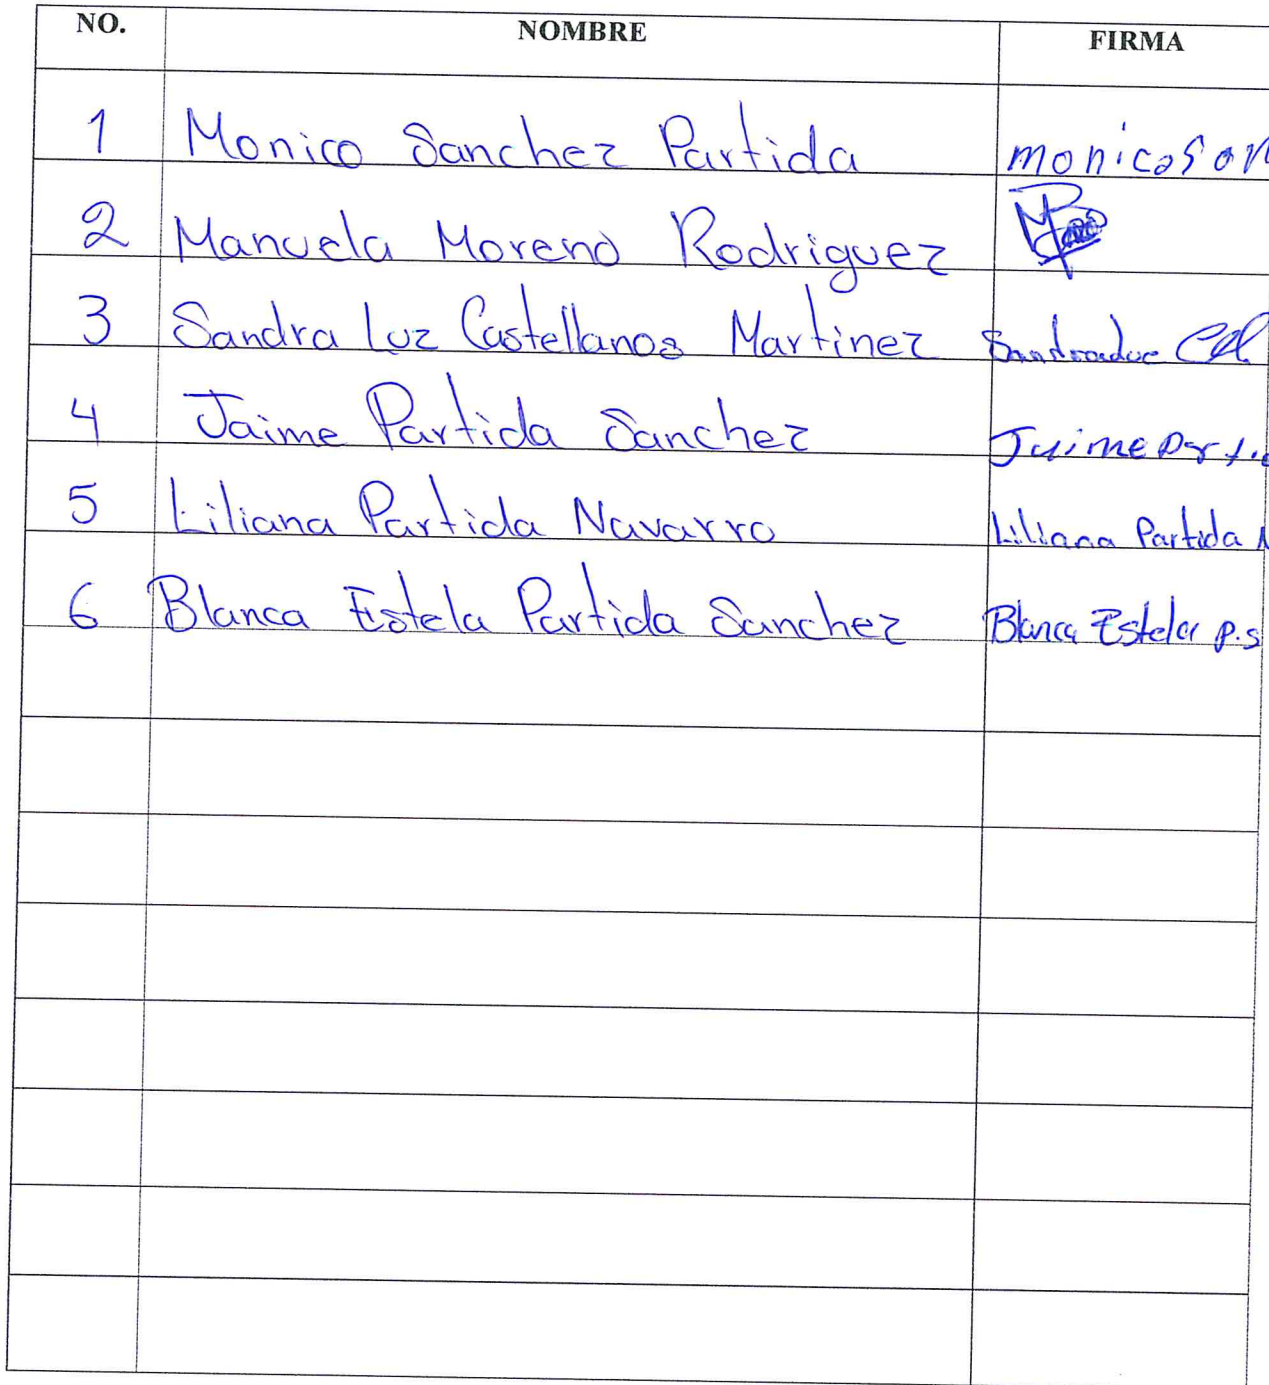 NO. NOMBRE FIRMA
1 Monico Sanchez Partida monicosan
2 Manuela Moreno Rodriguez
3 Sandra Luz Castellanos Martinez
4 Jaime Partida Sanchez Jaime
5 Liliana Partida Navarro Liliana Partida N
6 Blanca Estela Partida Sanchez Blanca Estela P.S